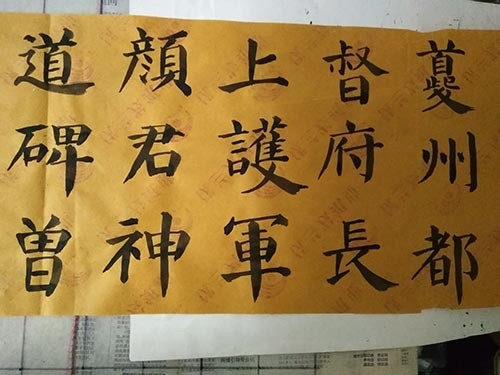 夔州都
督府長
上護軍
顏君神
道碑曾